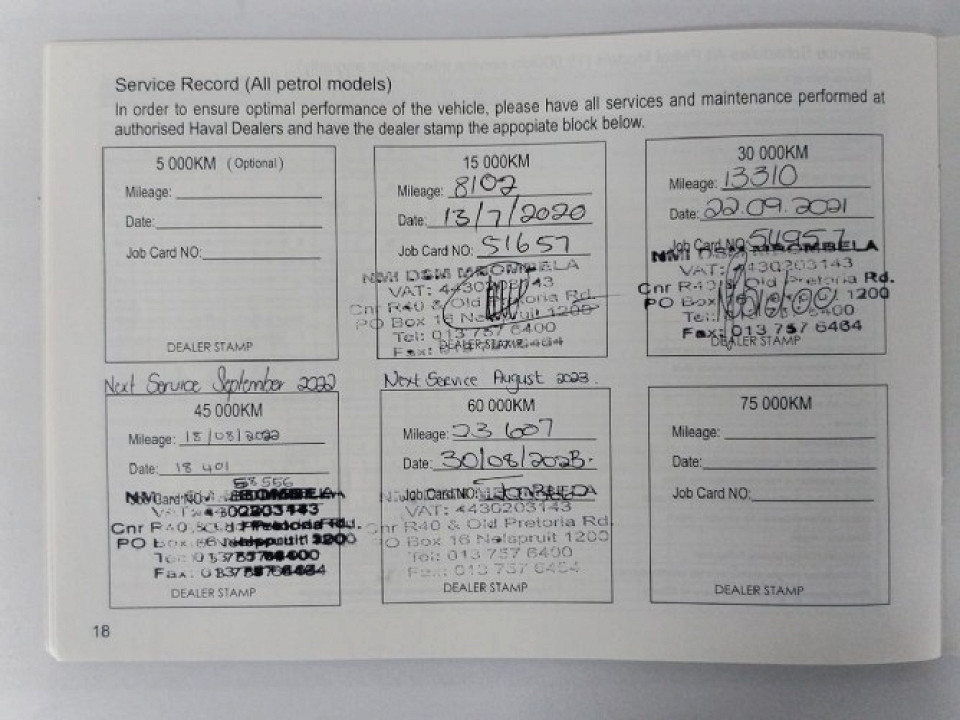 Service Record (All petrol models)
In order to ensure optimal performance of the vehicle, please have all services and maintenance performed at
authorised Haval Dealers and have the dealer stamp the appopiate block below.
5 000KM (Optional)
Mileage:
Date:
Job Card NO:
DEALER STAMP
15 000KM
Mileage: 8102
Date: 13/7/2020
Job Card NO: 51657
NMI DSM MBOMBELA
VAT: 4430203143
Cnr R40 & Old Pretoria Rd.
PO Box 16 Nelspruit 1200
Tel: 013 757 6400
Fax: 013 757 6464
DEALER STAMP
30 000KM
Mileage: 13310
Date: 22.09.2021
Job Card NO: 54957
NMI DSM MBOMBELA
VAT: 4430203143
Cnr R40 & Old Pretoria Rd.
PO Box 1200
Tel: 6400
Fax: 013 757 6464
DEALER STAMP
Next Service September 2022
45 000KM
Mileage: 18/08/2022
Date: 18 401
58556
Job Card NO:
Cnr R40
PO Box
DEALER STAMP
Next Service August 2023.
60 000KM
Mileage: 23 607
Date: 30/08/2023.
Job Card NO:
VAT: 4430203143
Cnr R40 & Old Pretoria Rd
PO Box 16 Nelspruit 1200
Tel: 013 757 6400
Fax: 013 757 6464
DEALER STAMP
75 000KM
Mileage:
Date:
Job Card NO:
DEALER STAMP
18